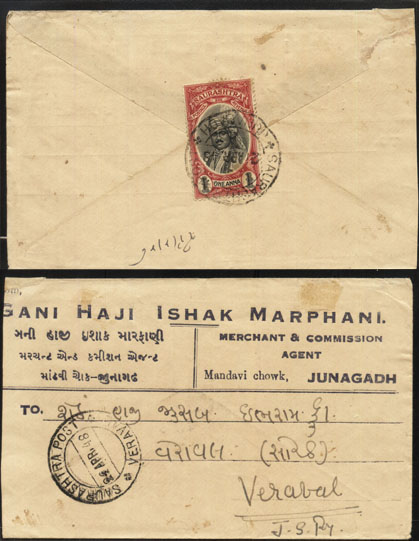 SAURASHTRA
1 ONE ANNA 1
GANI HAJI ISHAK MARPHANI.
ગની હાજી ઇશાક મારફાણી
મરચન્ટ એન્ડ કમીશન એજન્ટ
માંડવી ચોક-જુનાગઢ
MERCHANT & COMMISSION
AGENT
Mandavi chowk, JUNAGADH
TO. શેઠ હાજી જુસબ ઇભરામ કું
વેરાવળ (સોરઠ)
Veraval
J. S. Ry.
SAURASHTRA POST
APR 48
VERAVAL